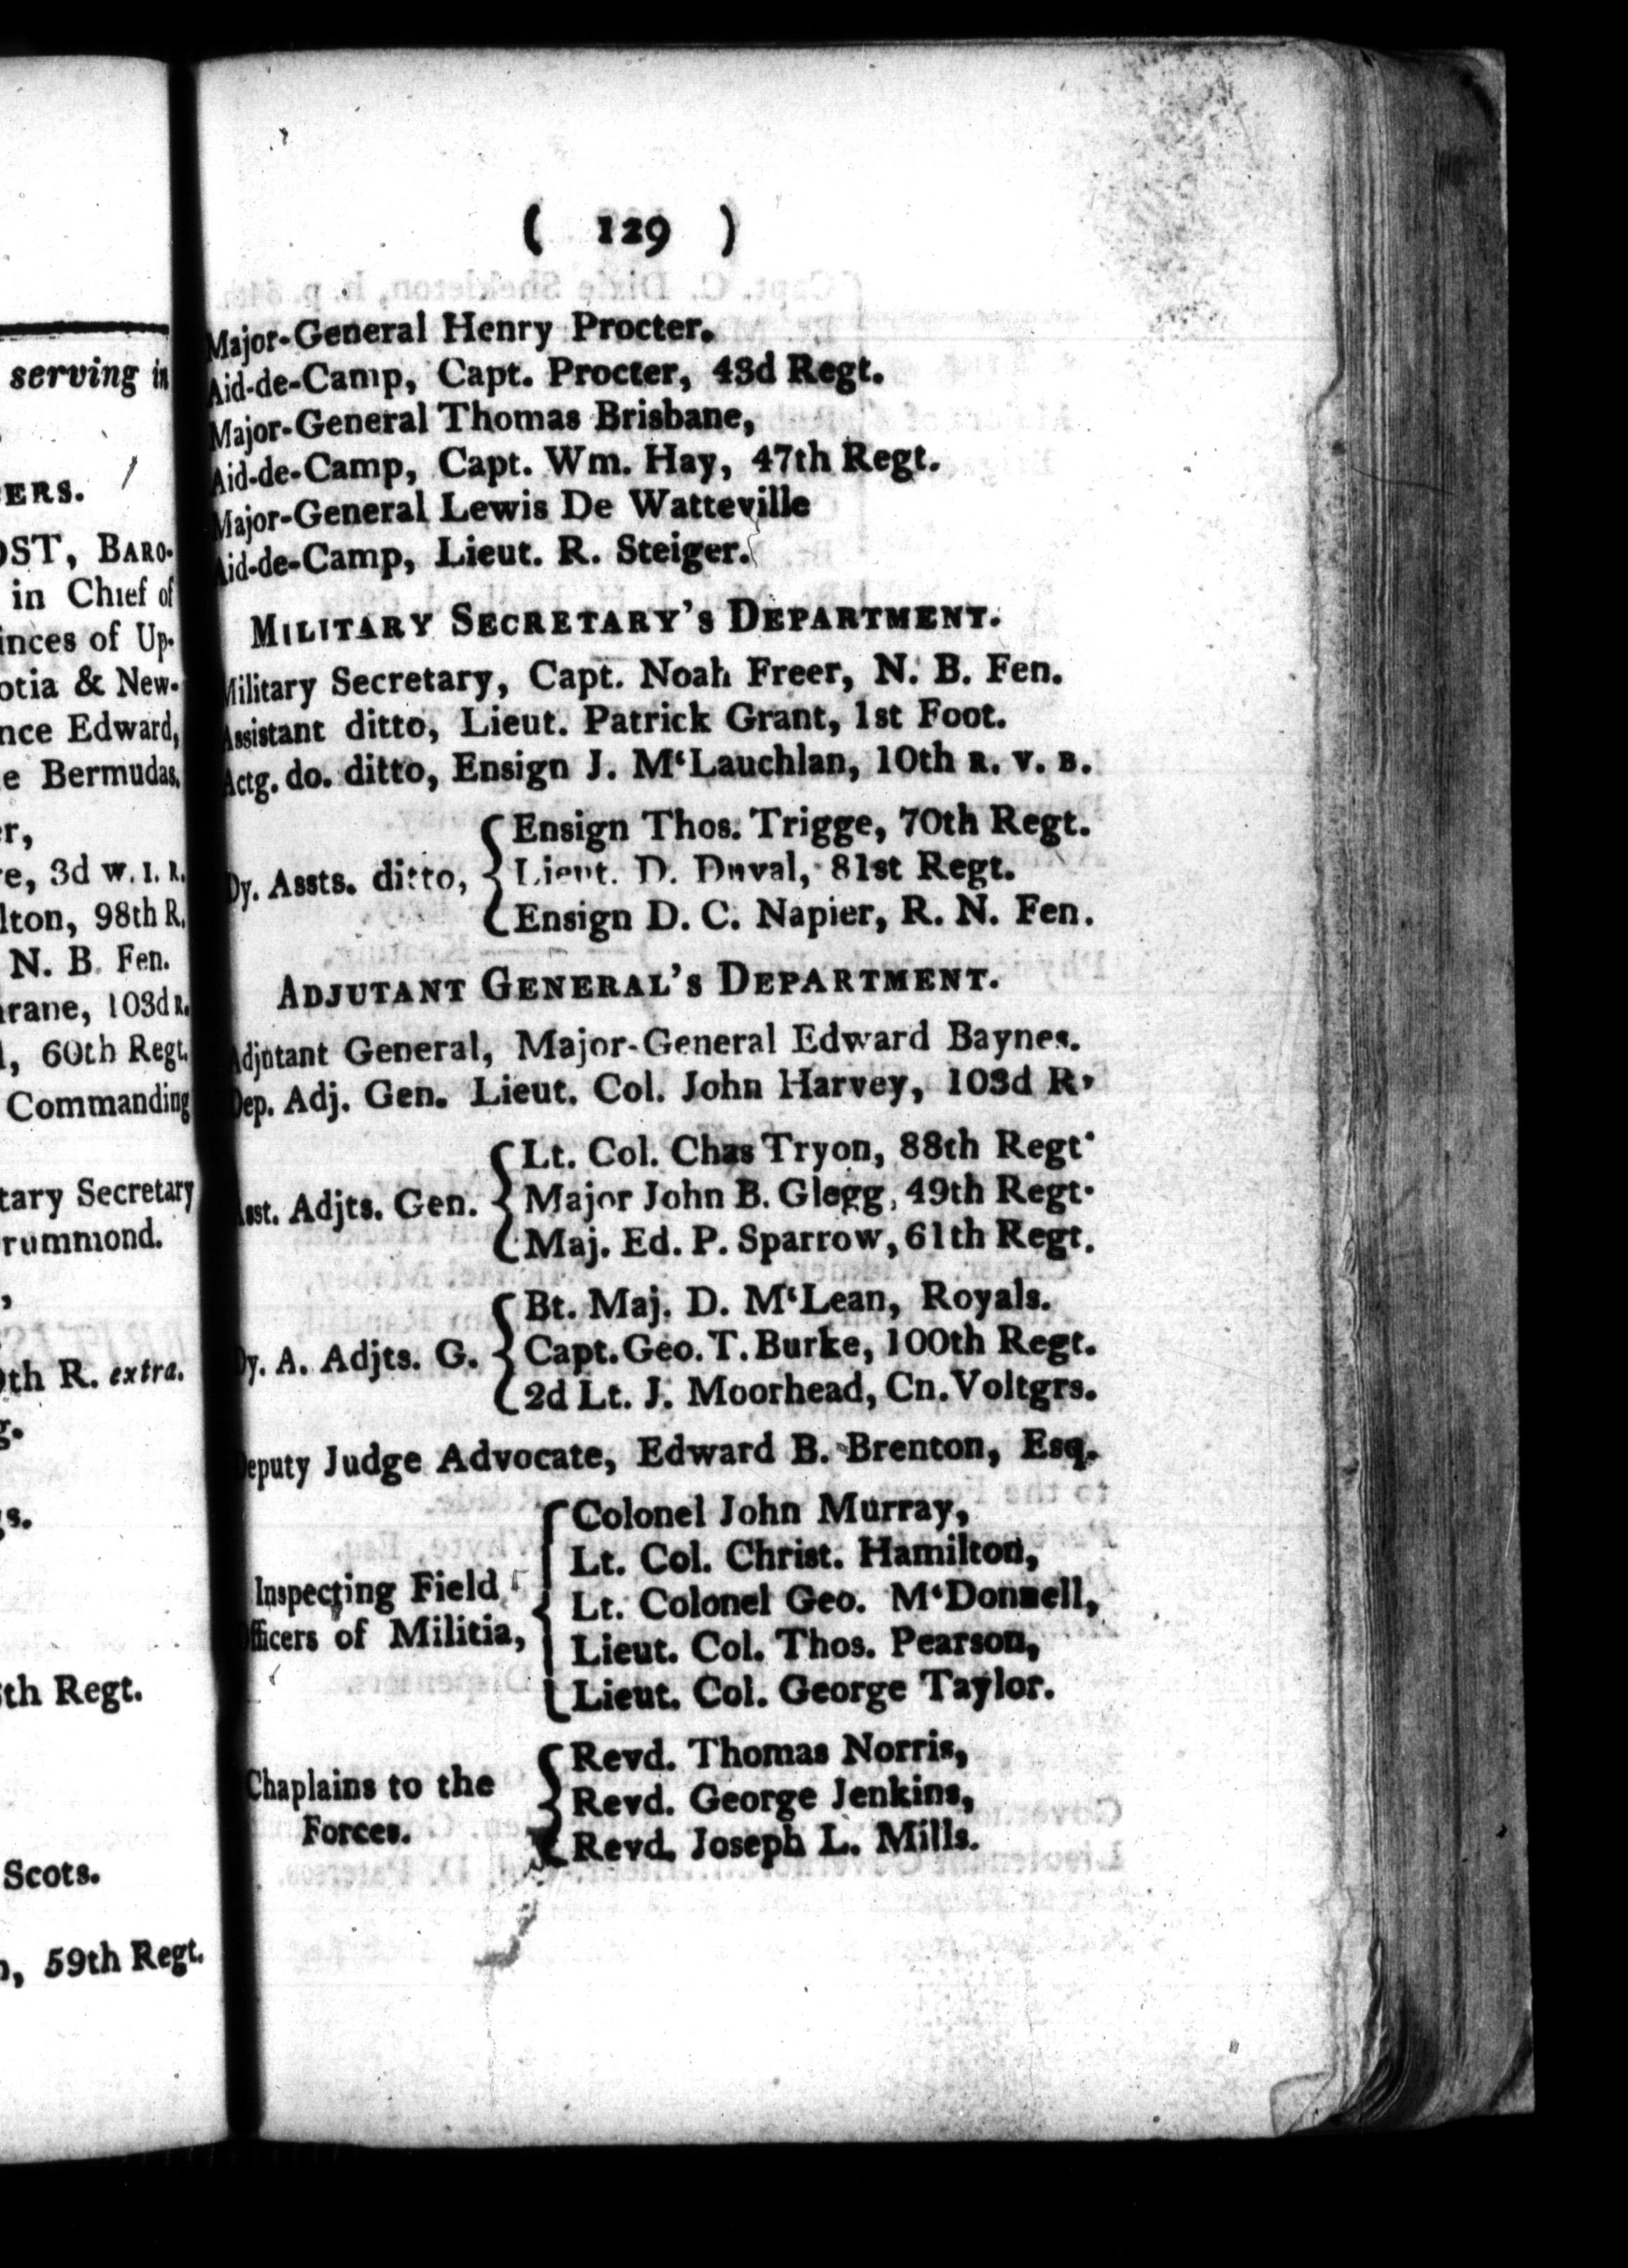 serving in
ERS.
OST, BARO-
in Chief of
inces of Up-
otia & New-
nce Edward,
e Bermudas,
er,
re, 3d W. I. R.
lton, 98th R.
N. B. Fen.
rane, 103d R.
l, 60th Regt.
Commanding
tary Secretary
rummond.
0th R. extra.
g.
gs.
th Regt.
Scots.
n, 59th Regt.
( 129 )
Major-General Henry Procter.
Aid-de-Camp, Capt. Procter, 43d Regt.
Major-General Thomas Brisbane,
Aid-de-Camp, Capt. Wm. Hay, 47th Regt.
Major-General Lewis De Watteville
Aid-de-Camp, Lieut. R. Steiger.
MILITARY SECRETARY'S DEPARTMENT.
Military Secretary, Capt. Noah Freer, N. B. Fen.
Assistant ditto, Lieut. Patrick Grant, 1st Foot.
Actg. do. ditto, Ensign J. M‘Lauchlan, 10th R. V. B.
Ensign Thos. Trigge, 70th Regt.
Dy. Assts. ditto, Lieut. D. Duval, 81st Regt.
Ensign D. C. Napier, R. N. Fen.
ADJUTANT GENERAL'S DEPARTMENT.
Adjutant General, Major-General Edward Baynes.
Dep. Adj. Gen. Lieut. Col. John Harvey, 103d R,
Lt. Col. Chas Tryon, 88th Regt.
Asst. Adjts. Gen. Major John B. Glegg, 49th Regt.
Maj. Ed. P. Sparrow, 61th Regt.
Bt. Maj. D. M‘Lean, Royals.
Dy. A. Adjts. G. Capt. Geo. T. Burke, 100th Regt.
2d Lt. J. Moorhead, Cn. Voltgrs.
Deputy Judge Advocate, Edward B. Brenton, Esq.
Colonel John Murray,
Lt. Col. Christ. Hamilton,
Inspecting Field Lt. Colonel Geo. M‘Donnell,
Officers of Militia, Lieut. Col. Thos. Pearson,
Lieut. Col. George Taylor.
Revd. Thomas Norris,
Chaplains to the Revd. George Jenkins,
Forces. Revd. Joseph L. Mills.